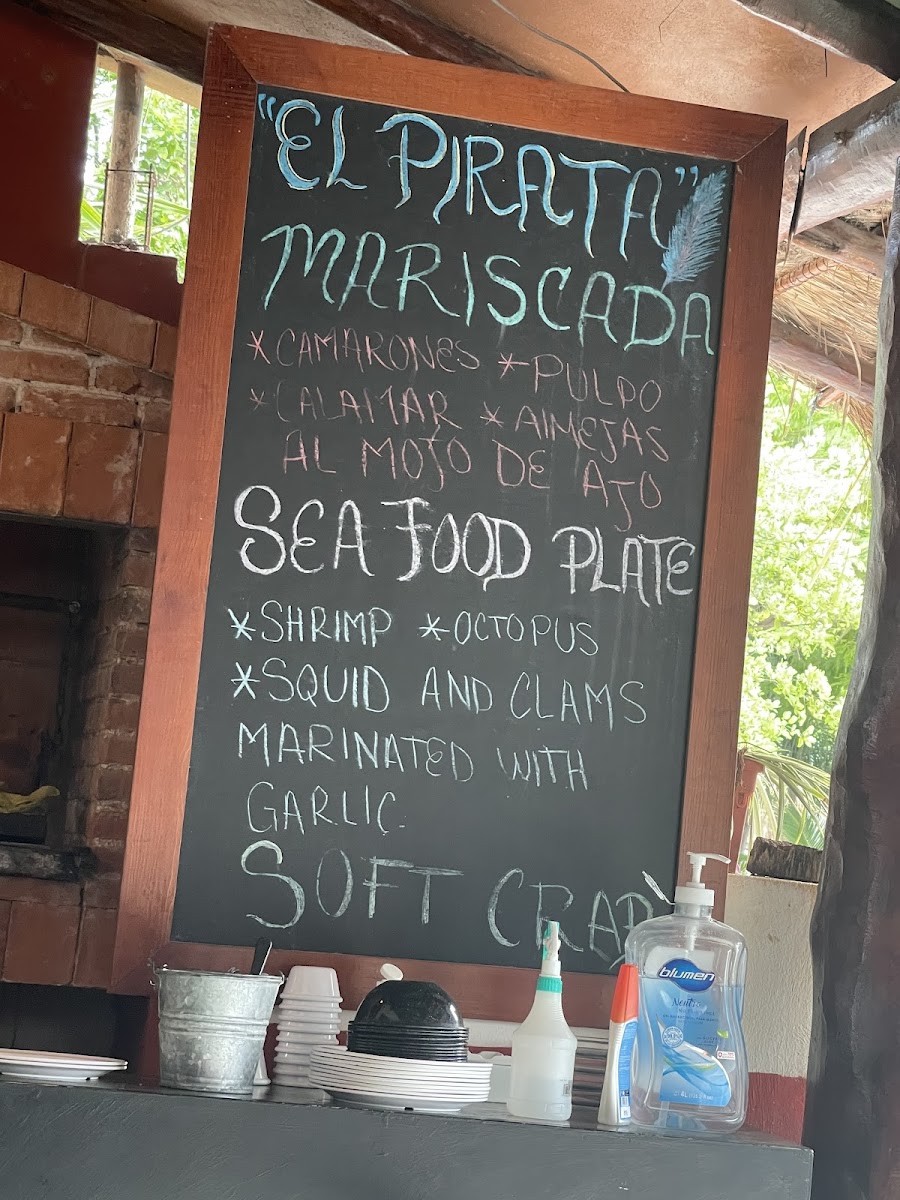 "EL PIRATA"
MARISCADA
*CAMARONES *PULPO
*CALAMAR *AIMEJAS
AL MOJO DE AJO
SEA FOOD PLATE
*SHRIMP *OCTOPUS
*SQUID AND CLAMS
MARINATED WITH
GARLIC
SOFT CRAB
blumen